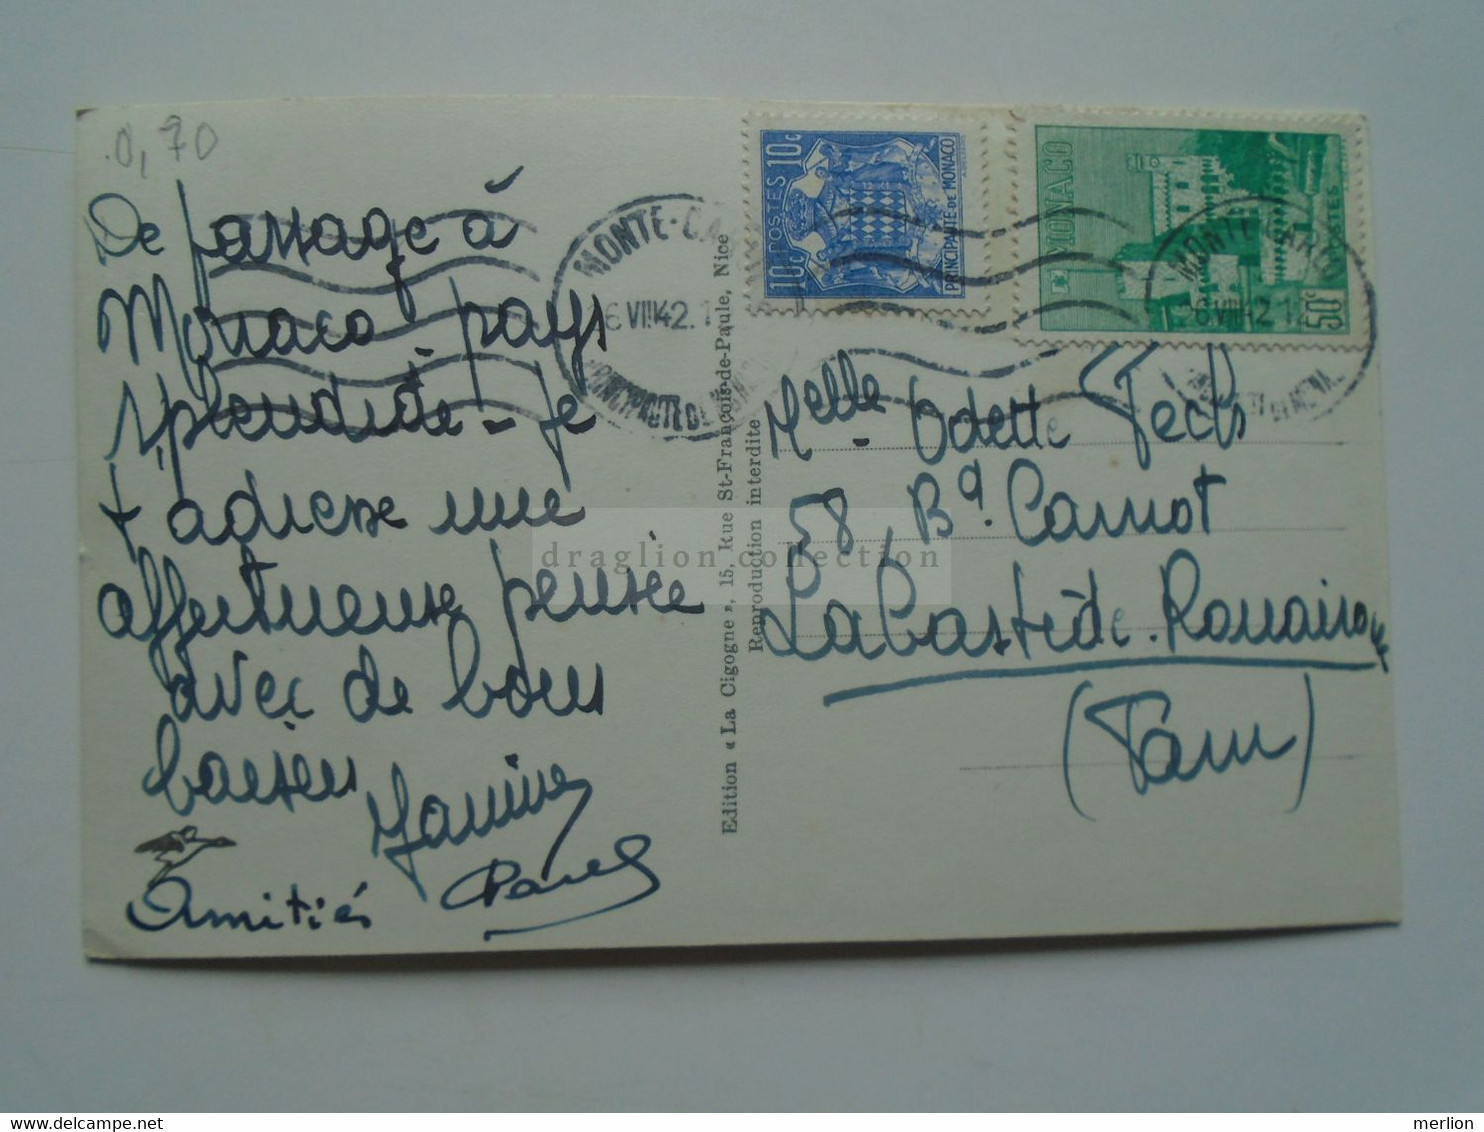 0,70
De passage à
Monaco - pays
splendide - je
t'adresse une
affectueuse pensée
avec de bons
baisers
Janine
Amitiés
Edition « La Cigogne », 15, Rue St-François-de-Paule, Nice
Reproduction interdite
MONTE-CARLO
6 VII 42
PRINCIPAUTE DE MONACO
10c POSTES 10c
PRINCIPAUTE DE MONACO
MONACO
POSTES
50c
MONTE-CARLO
6 VII 42 12
Melle Odette
58, Bd. Carnot
Labastide-Rouairoux
(Tarn)
draglion collection
merlion